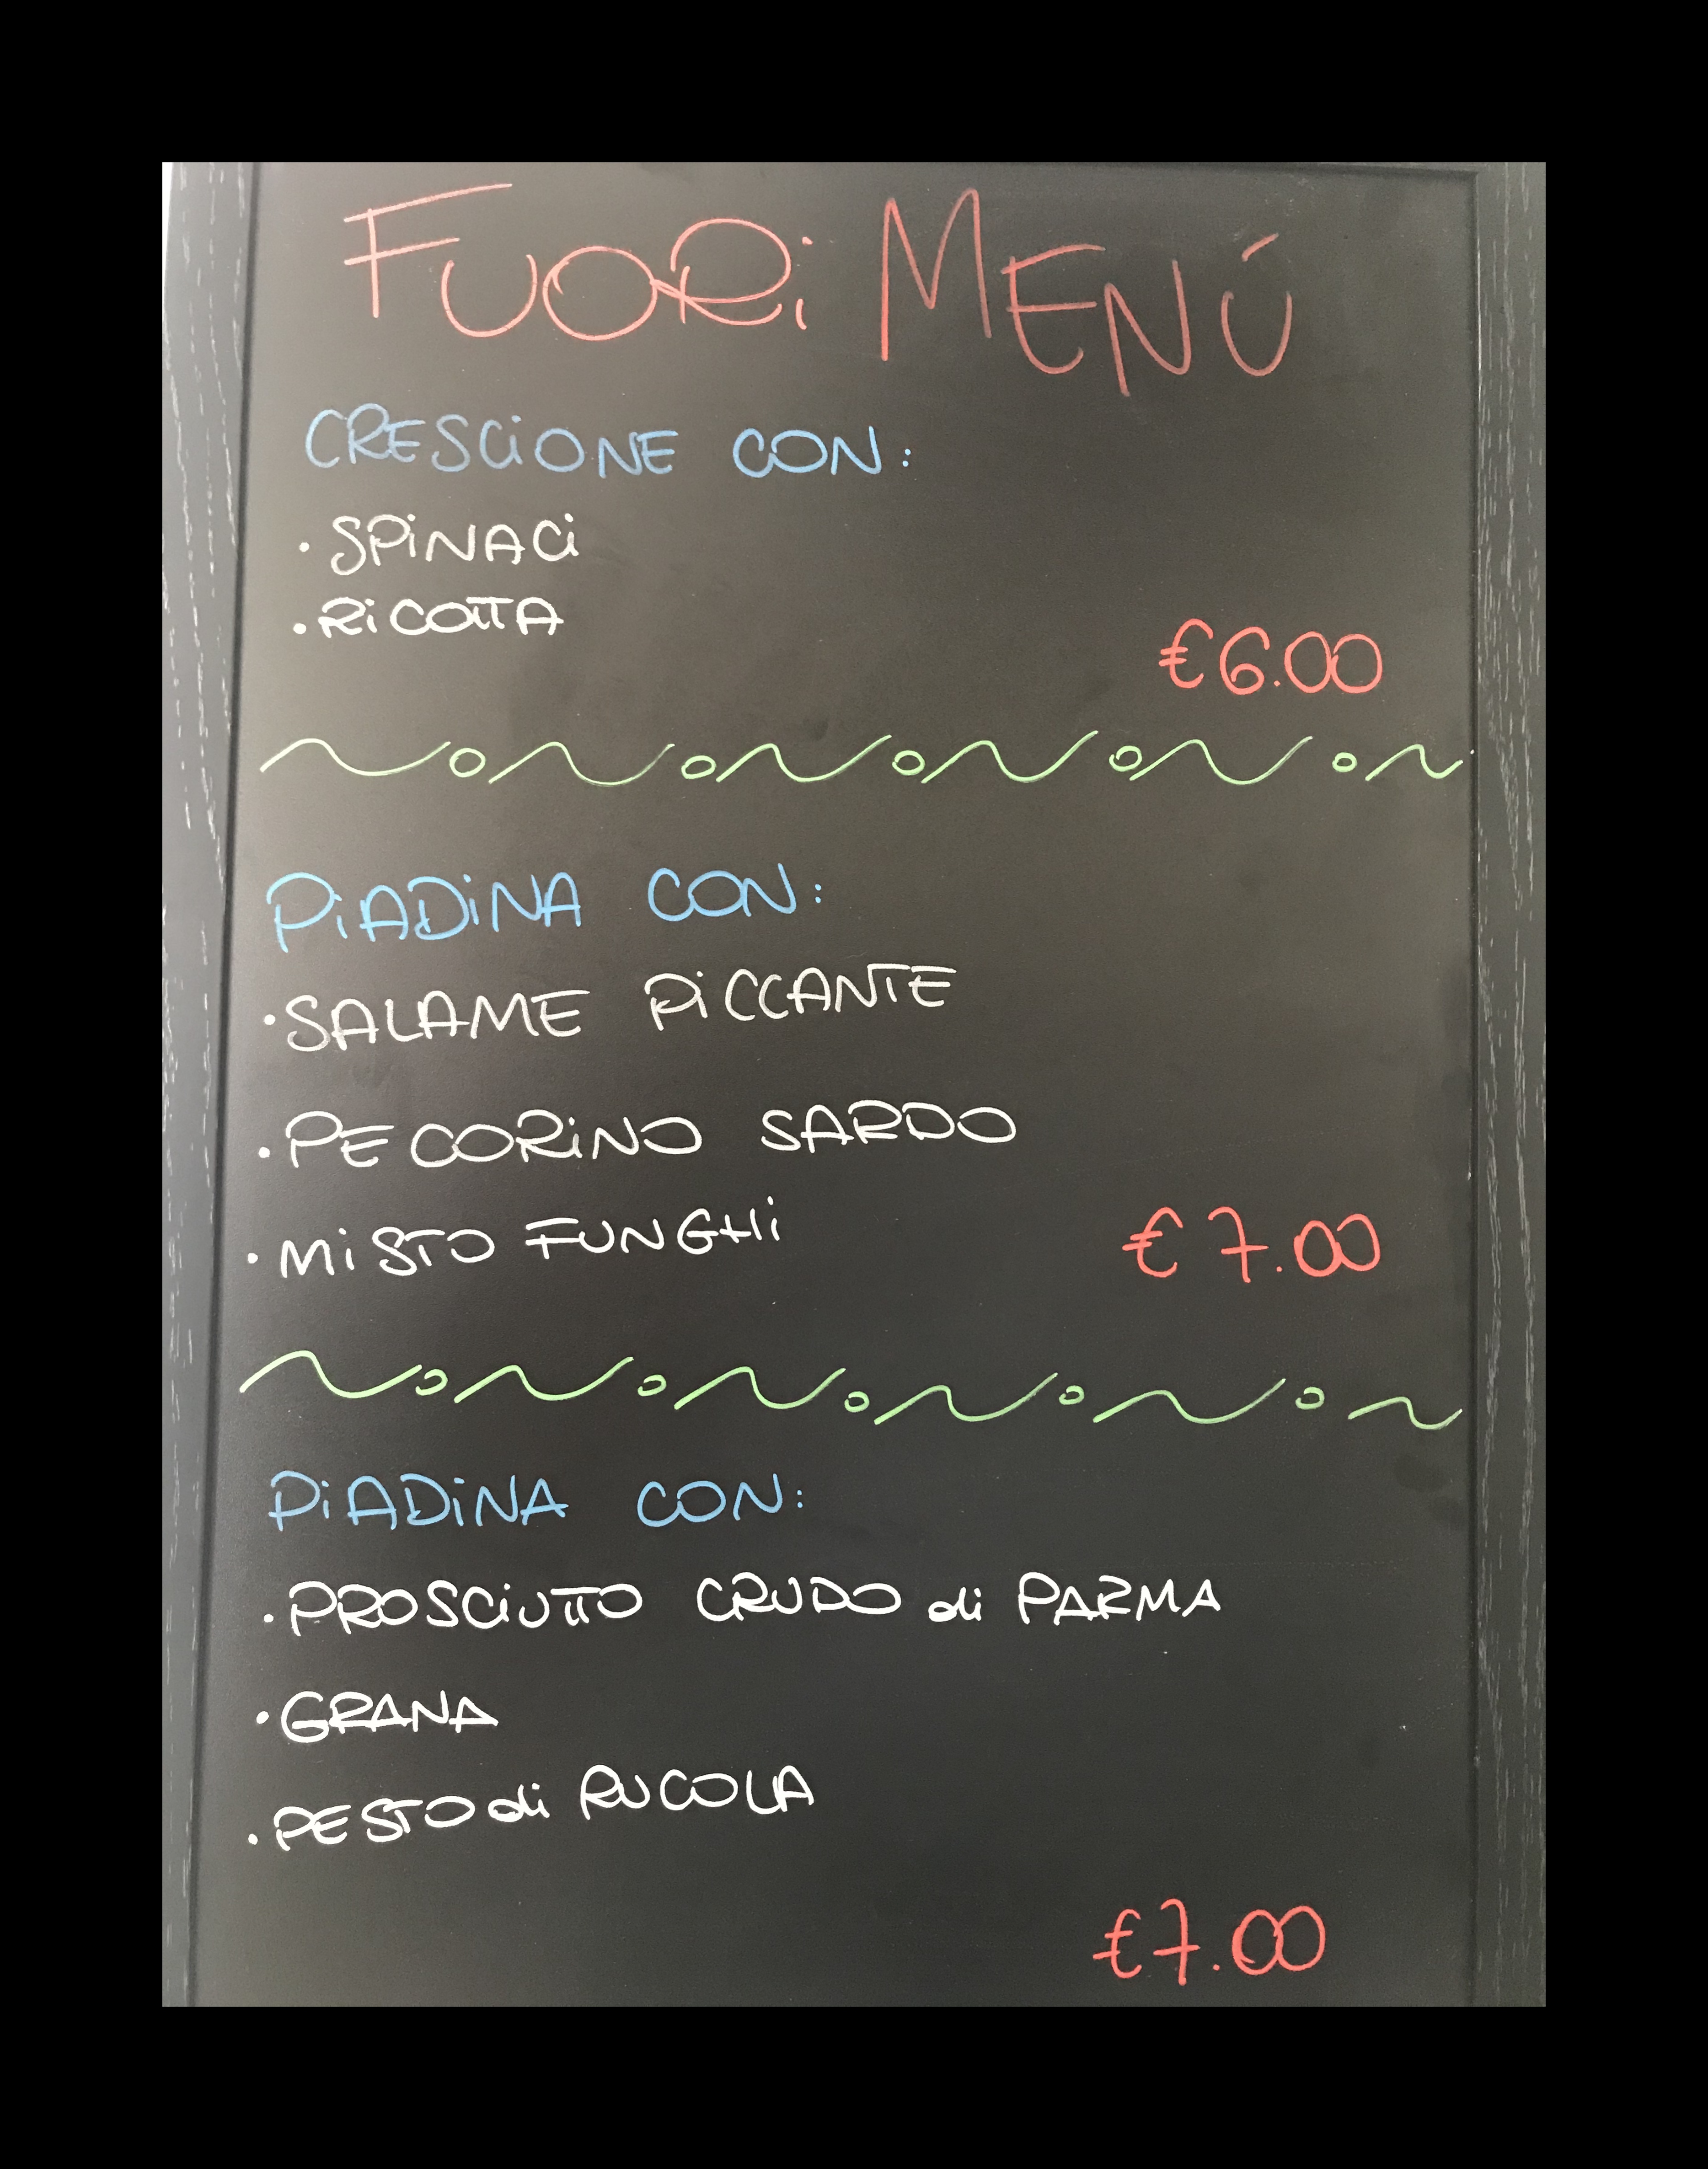 FUORi MENÚ
CRESCiONE CON:
• SPiNACi
• RiCOTTA
€6.00
PiADiNA CON:
• SALAME PiCCANTE
• PECORiNO SARDO
• MiSTO FUNGHi
€7.00
PiADiNA CON:
• PROSCiUTTO CRUDO di PARMA
• GRANA
• PESTO di RUCOLA
€7.00